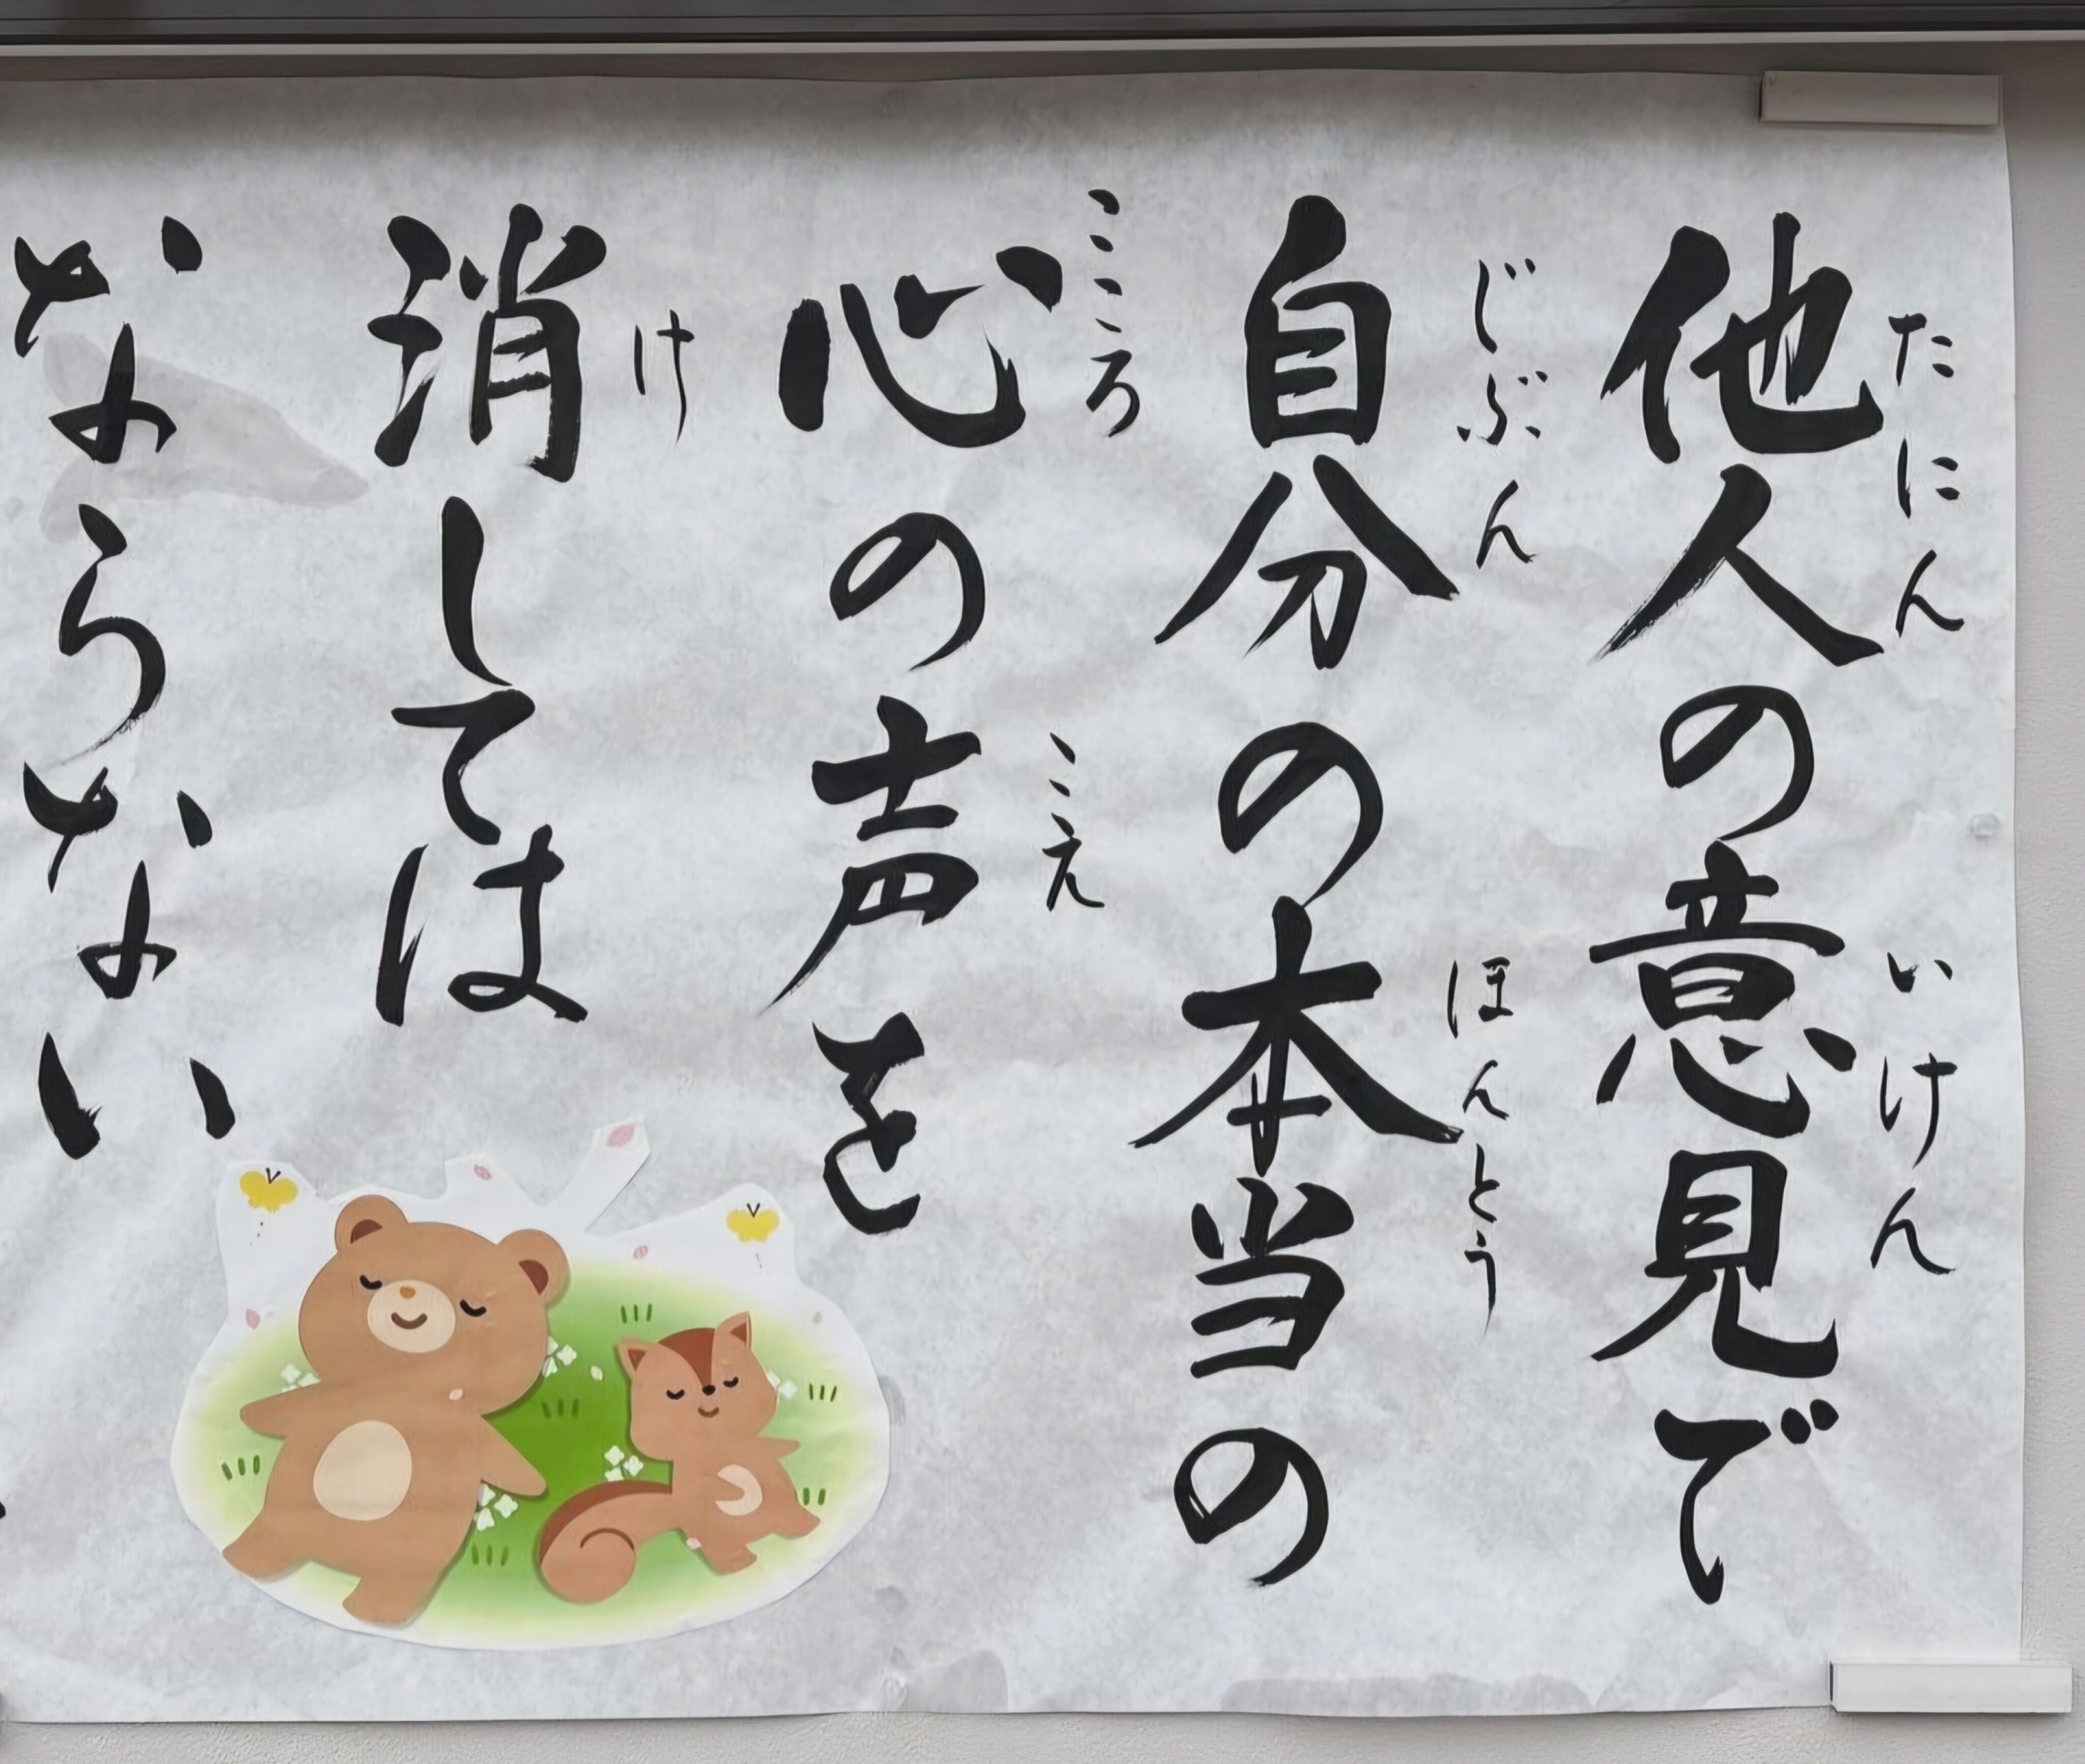 他人の意見で
たにん
いけん
自分の本当の
じぶん
ほんとう
心の声を
こころ
こえ
消しては
け
ならない